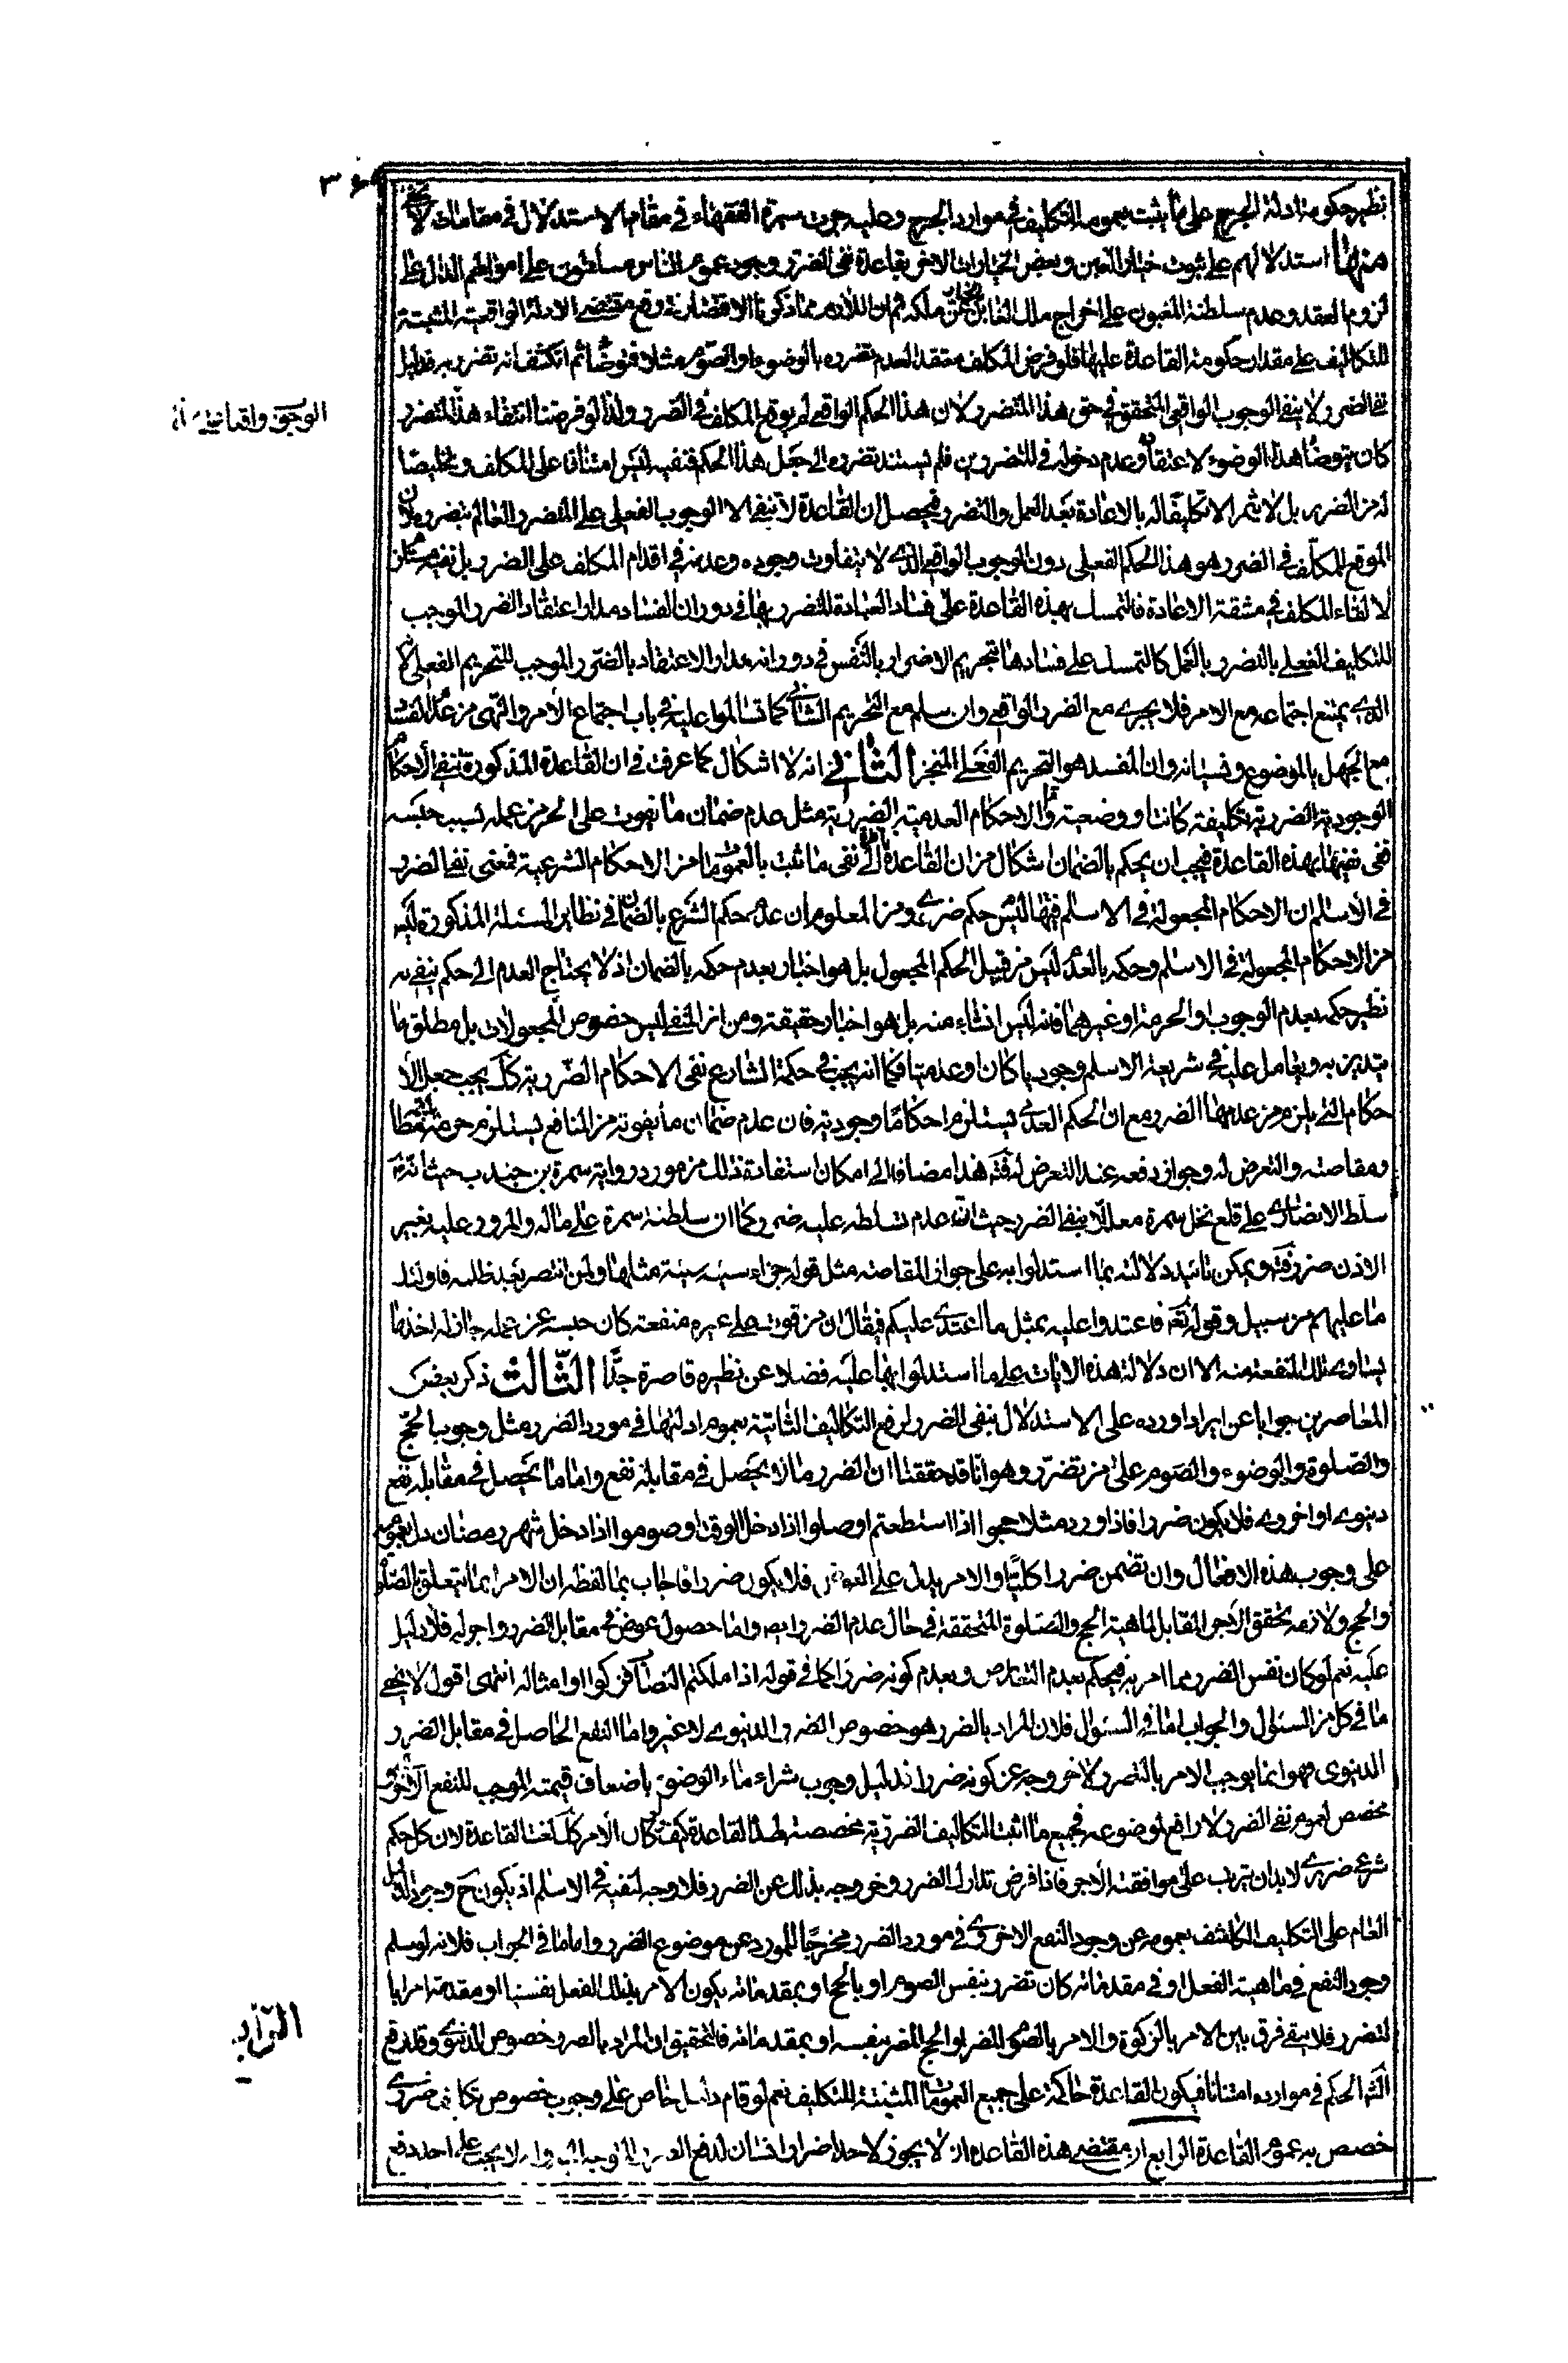 نظير حكومة ادلة الحرج على ما يثبت بعمومه التكليف في موارد الحرج وعليه جرت سيرة الفقهاء في مقام الاستدلال في مقامات لا يخفى
منها استدلالهم على ثبوت خيار الغبن وبعض الخيارات الاخر بقاعدة نفى الضرر وجود عموم الناس مسلطون على اموالهم الدال على
لزوم العقد وعدم سلطنة المغبون على اخراج ملك الغابن بالخيار عن ملكه ثم ان اللازم مما ذكرنا الاقتصار في رفع مقتضى الادلة الواقعية المثبتة
للتكاليف على مقدار حكومة القاعدة عليها فلو فرض المكلف معتقدا لعدم تضرره بالوضوء او الصوم مثلا فتوضأ ثم انكشف انه تضرر به فدليل
نفى الضرر لا ينفى الوجوب الواقعى المتحقق في حق هذا المتضرر لان هذا الحكم الواقعى لم يوقع المكلف في الضرر ولذا لو فرضنا انتفاء هذا المتضرر
كان يتوضأ هذا الوضوء لاعتقاده عدم دخوله في المتضررين فلم يستند تضرره الى جعل هذا الحكم فنفيه ليس امتنانا على المكلف وتخليصا
له من الضرر بل لا يثمر الا تكليفا له بالاعادة بعد العمل والتضرر فتحصل ان القاعدة لا تنفى الا الوجوب الفعلى على المتضرر العالم بتضرره لان
الموقع للمكلف في الضرر هو هذا الحكم الفعلى دون الوجوب الواقعى الذى لا يتفاوت وجوده وعدمه في اقدام المكلف على الضرر بل نفيه مستلزم
لالقاء المكلف في مشقة الاعادة فالتمسك بهذه القاعدة على فساد العبادة للتضرر بها في دوران الفساد مدار اعتقاد الضرر الموجب
للتكليف الفعلى بالتضرر بالعمل كالتمسك على فسادها بتحريم الاضرار بالنفس في دورانه مدار الاعتقاد بالضرر الموجب للتحريم الفعلى لانه
الذى يمتنع اجتماعه مع الامر فلا يجرى مع الضرر الواقعى وان سلم مع التحريم الشأنى كما تسالموا عليه في باب اجتماع الامر والنهى من عدم الفساد
مع الجهل بالموضوع ونسيانه وان المفسد هو التحريم الفعلى المنجز الثانى انه لا اشكال كما عرفت في ان القاعدة المذكورة تنفى الاحكام
الوجودية الضررية تكليفية كانت او وضعية واما الاحكام العدمية الضررية مثل عدم ضمان ما يفوت على الحر من عمله بسبب حبسه
ففى نفيها بهذه القاعدة فيجب ان يحكم بالضمان اشكال من ان القاعدة ناظرة الى نفى ما ثبت بالعمومات من الاحكام الشرعية فمعنى نفى الضرر
في الاسلام ان الاحكام المجعولة في الاسلام ليس فيها حكم ضررى ومن المعلوم ان عدم حكم الشرع بالضمان في نظاير المسئلة المذكورة ليس
من الاحكام المجعولة في الاسلام وحكمه بالعدم ليس من قبيل الحكم المجعول بل هو اخبار بعدم حكمه بالضمان اذ لا يحتاج العدم الى حكم ينفى به
نظير حكمه بعدم الوجوب او الحرمة او غيرهما فانه ليس انشاء منه بل هو اخبار حقيقة ومن ان المنفى ليس خصوص المجعولات بل مطلق ما
يتدين به ويعامل عليه في شريعة الاسلام وجوديا كان او عدميا فكما انه يجب في حكمة الشارع نفى الاحكام الضررية كك يجب جعل الا
حكام التى يلزم من عدمها الضرر مع ان الحكم العدمى يستلزم احكاما وجودية فان عدم ضمان ما يفوته من المنافع يستلزم حرمة مطالبته
ومقاصته والتعرض له وجواز دفعه عند التعرض له فتأمل هذا مضافا الى امكان استفادة ذلك من مورد رواية سمرة بن جندب حيث انه ص
سلط الانصارى على قلع نخل سمرة معللا بنفى الضرر حيث ان عدم تسلطه عليه ضرر كما ان سلطنة سمرة على ماله والمرور عليه بغير
الاذن ضرر فتأمل ويمكن تاييد دلالته بما استدلوا به على جواز المقاصة مثل قوله جزاء سيئة سيئة مثلها ولمن انتصر بعد ظلمه فاولئك
ما عليهم من سبيل وقوله تعالى فاعتدوا عليه بمثل ما اعتدى عليكم فيقال ان من فوت على غيره منفعة كان حبسه عن عمله جاز له اخذ ما
يساوى تلك المنفعة منه الا ان دلالة هذه الايات على ما استدلوا بها عليه فضلا عن نظيره قاصرة جدا الثالث ذكر بعض
المعاصرين جوابا عن ايراد اورده على الاستدلال بنفى الضرر لرفع التكاليف الثابتة بعموم ادلتها في مورد الضرر مثل وجوب الحج
والصلوة والوضوء والصوم على من يتضرر وهو انا قد حققنا ان الضرر ما لا يحصل في مقابله نفع واما ما يحصل في مقابله نفع
دنيوى او اخروى فلا يكون ضررا فاذا ورد مثلا حجوا اذا استطعتم او صلوا اذا دخل الوقت او صوموا اذا دخل شهر رمضان دل بعمومه
على وجوب هذه الافعال وان تضمن ضررا كليا والامر يدل على العوض فلا يكون ضررا فاجاب بما لفظه ان الامر انما يتعلق بالصلوة
والحج ولازمه تحقق الاجر المقابل لماهية الحج والصلوة المتحققة في حال عدم الضرر ايضا واما حصول عوض في مقابل الضرر واجر له فلا دليل
عليه نعم لو كان نفس الضرر مما امر به فيحكم بعدم التعارض وبعدم كونه ضررا كما في قوله اذا ملكتم النصاب فزكوا او امثاله انتهى اقول لا يخفى
ما في كل من السئوال والجواب اما في السئوال فلان المراد بالضرر هو خصوص الضرر الدنيوى لا غير واما النفع الحاصل في مقابل الضرر
الدنيوى فهو انما يوجب الامر بالتضرر لا خروجه عن كونه ضررا فدليل وجوب شراء ماء الوضوء باضعاف قيمته الموجب للنفع الاخروى
مخصص لعموم نفى الضرر لا رافع لموضوعه فجميع ما اثبت التكاليف الضررية مخصصة لهذه القاعدة كيف ولو كان الامر كك لغت القاعدة لان كل حكم
شرعى ضررى لابد ان يترتب على موافقته الاجر فاذا فرض تدارك الضرر وخروجه بذلك عن الضرر فلا وجه لنفيه في الاسلام اذ يكون ح وجود الدليل
العام على التكليف الكاشف بعمومه عن وجود النفع الاخروى في مورد الضرر مخرجا للمورد عن موضوع الضرر واما ما في الجواب فلانه لو سلم
وجود النفع في ماهية الفعل او في مقدماته كان تضرر بنفس الصوم او بالحج او بمقدماته يكون الامر بذلك الفعل نفسيا او مقدمة امرا با
لتضرر فلا يبقى فرق بين الامر بالزكوة والامر بالصوم المضر او الحج المضر بنفسه او بمقدماته فالتحقيق ان المراد بالضرر خصوص الدنيوى وقد رفع
الشم الحكم في موارده امتنانا فيكون القاعدة حاكمة على جميع العمومات المثبتة للتكليف نعم لو قام دليل خاص على وجوب خصوص تكليف ضررى
خصص به عموم القاعدة الرابع ان مقتضى هذه القاعدة ان لا يجوز لاحد اضرار انسان لدفع الضرر المتوجه اليه وانه لا يجب على احد دفع
الرابع